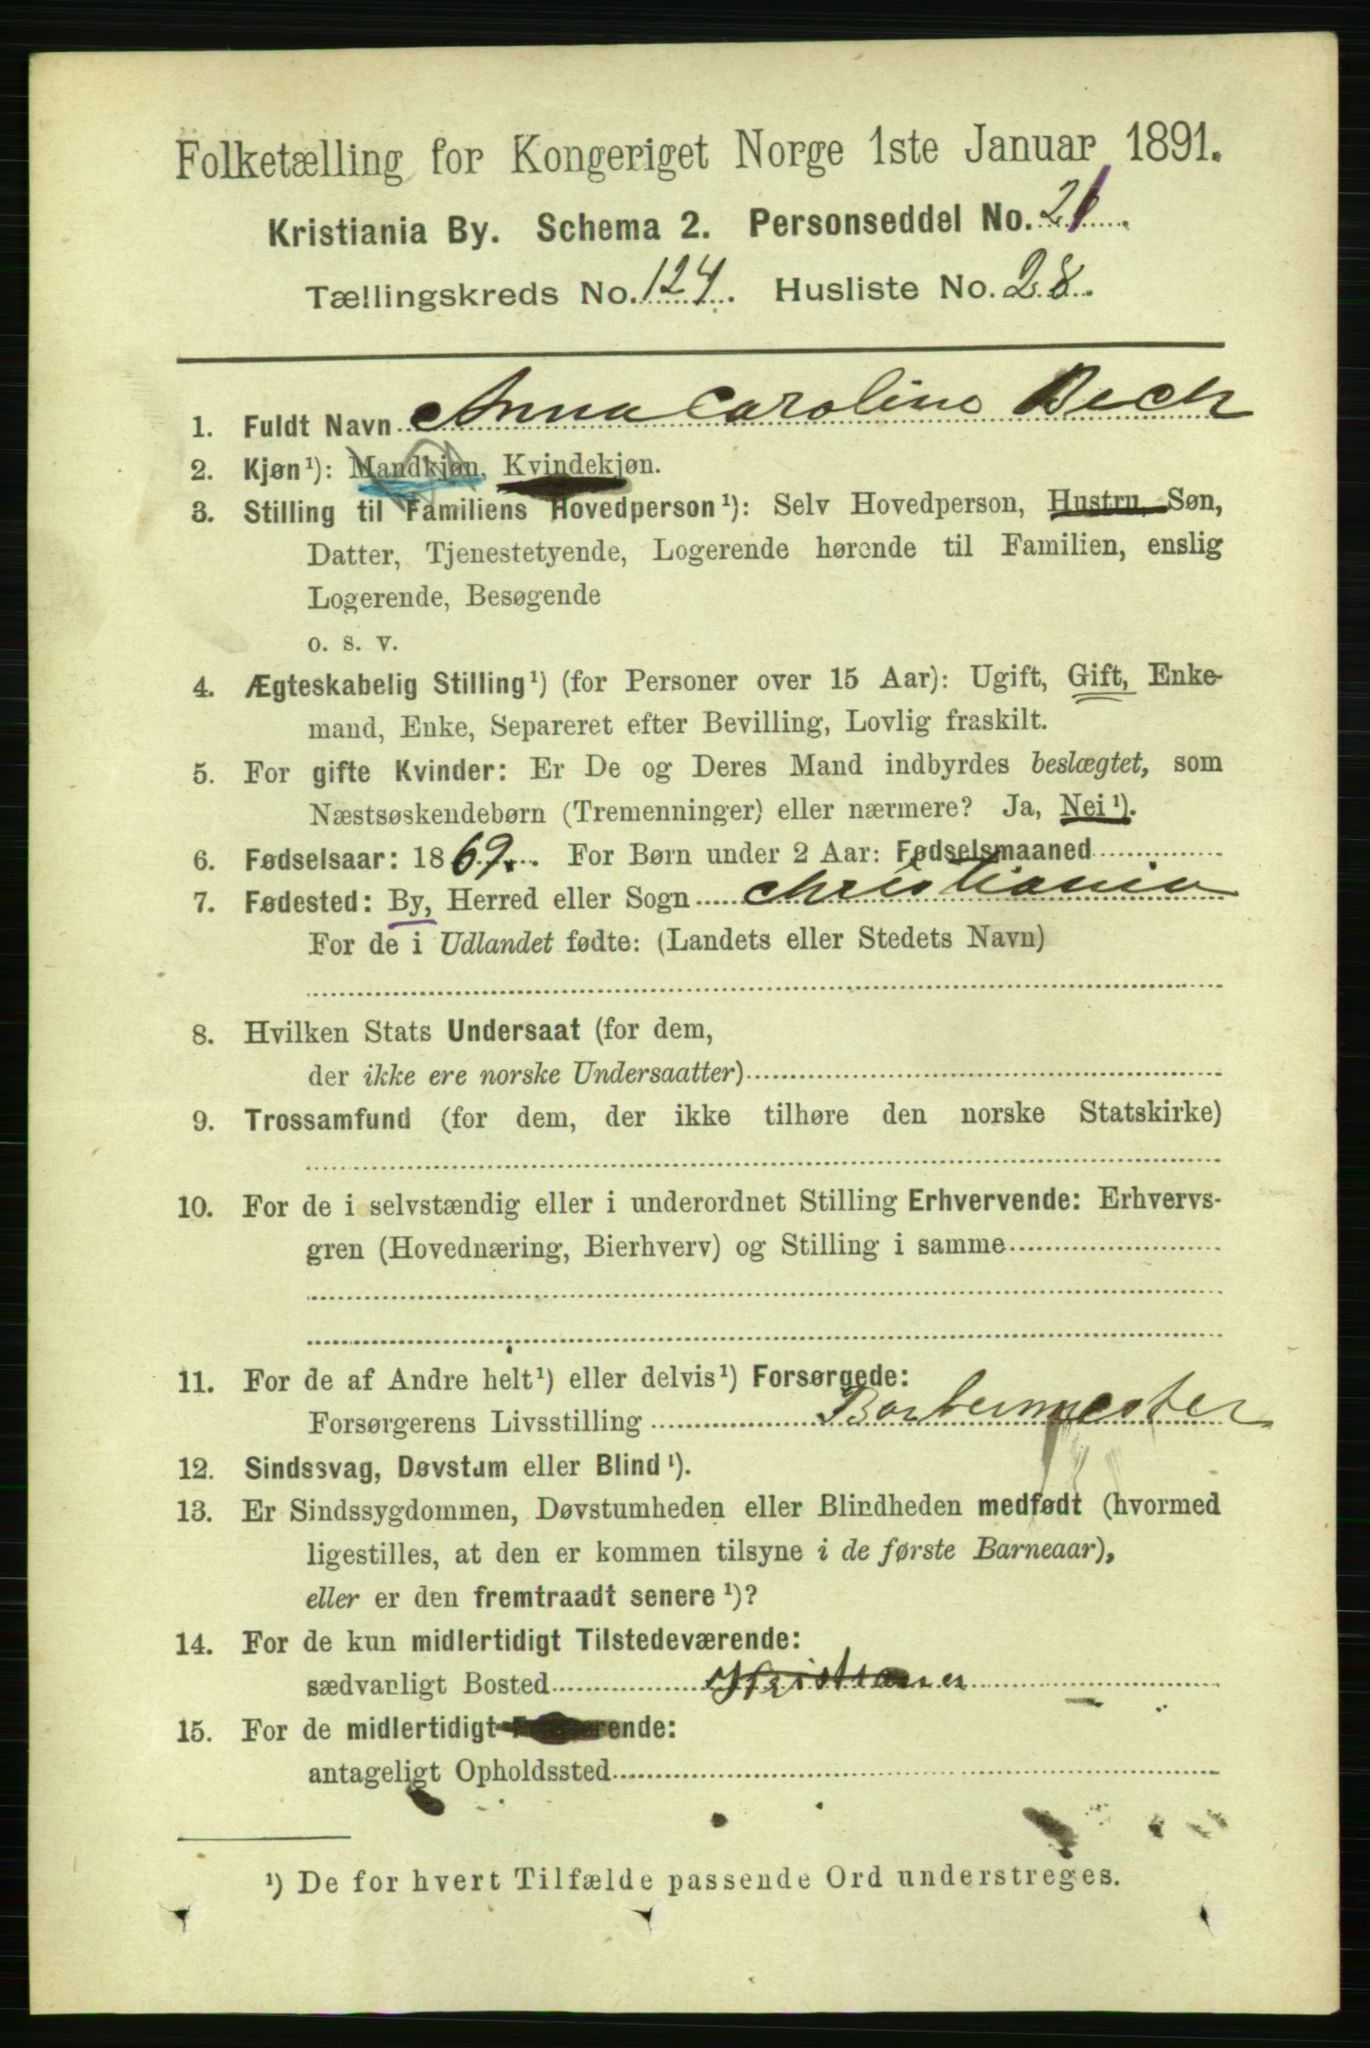 Folketælling for Kongeriget Norge 1ste Januar 1891.
Kristiania By. Schema 2. Personseddel No. 21.
Tællingskreds No. 124. Husliste No. 28.
1. Fuldt Navn Anna Caroline Bech
2. Kjøn¹): Mandkjøn, Kvindekjøn.
3. Stilling til Familiens Hovedperson¹): Selv Hovedperson, Hustru, Søn,
Datter, Tjenestetyende, Logerende hørende til Familien, enslig
Logerende, Besøgende
o. s. v.
4. Ægteskabelig Stilling¹) (for Personer over 15 Aar): Ugift, Gift, Enke-
mand, Enke, Separeret efter Bevilling, Lovlig fraskilt.
5. For gifte Kvinder: Er De og Deres Mand indbyrdes beslægtet, som
Næstsøskendebørn (Tremenninger) eller nærmere? Ja, Nei¹).
6. Fødselsaar: 1869. For Børn under 2 Aar: Fødselsmaaned
7. Fødested: By, Herred eller Sogn Christiania
For de i Udlandet fødte: (Landets eller Stedets Navn)
8. Hvilken Stats Undersaat (for dem,
der ikke ere norske Undersaatter)
9. Trossamfund (for dem, der ikke tilhøre den norske Statskirke)
10. For de i selvstændig eller i underordnet Stilling Erhvervende: Erhvervs-
gren (Hovednæring, Bierhverv) og Stilling i samme
11. For de af Andre helt¹) eller delvis¹) Forsørgede:
Forsørgerens Livsstilling Barbermester
12. Sindssvag, Døvstum eller Blind¹).
13. Er Sindssygdommen, Døvstumheden eller Blindheden medfødt (hvormed
ligestilles, at den er kommen tilsyne i de første Barneaar),
eller er den fremtraadt senere¹)?
14. For de kun midlertidigt Tilstedeværende:
sædvanligt Bosted
15. For de midlertidigt Fraværende:
antageligt Opholdssted
¹) De for hvert Tilfælde passende Ord understreges.